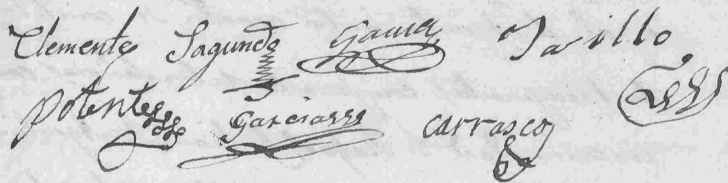 Clemente Sagundo Garcia Jasillo
Potente Garcia Carrasco